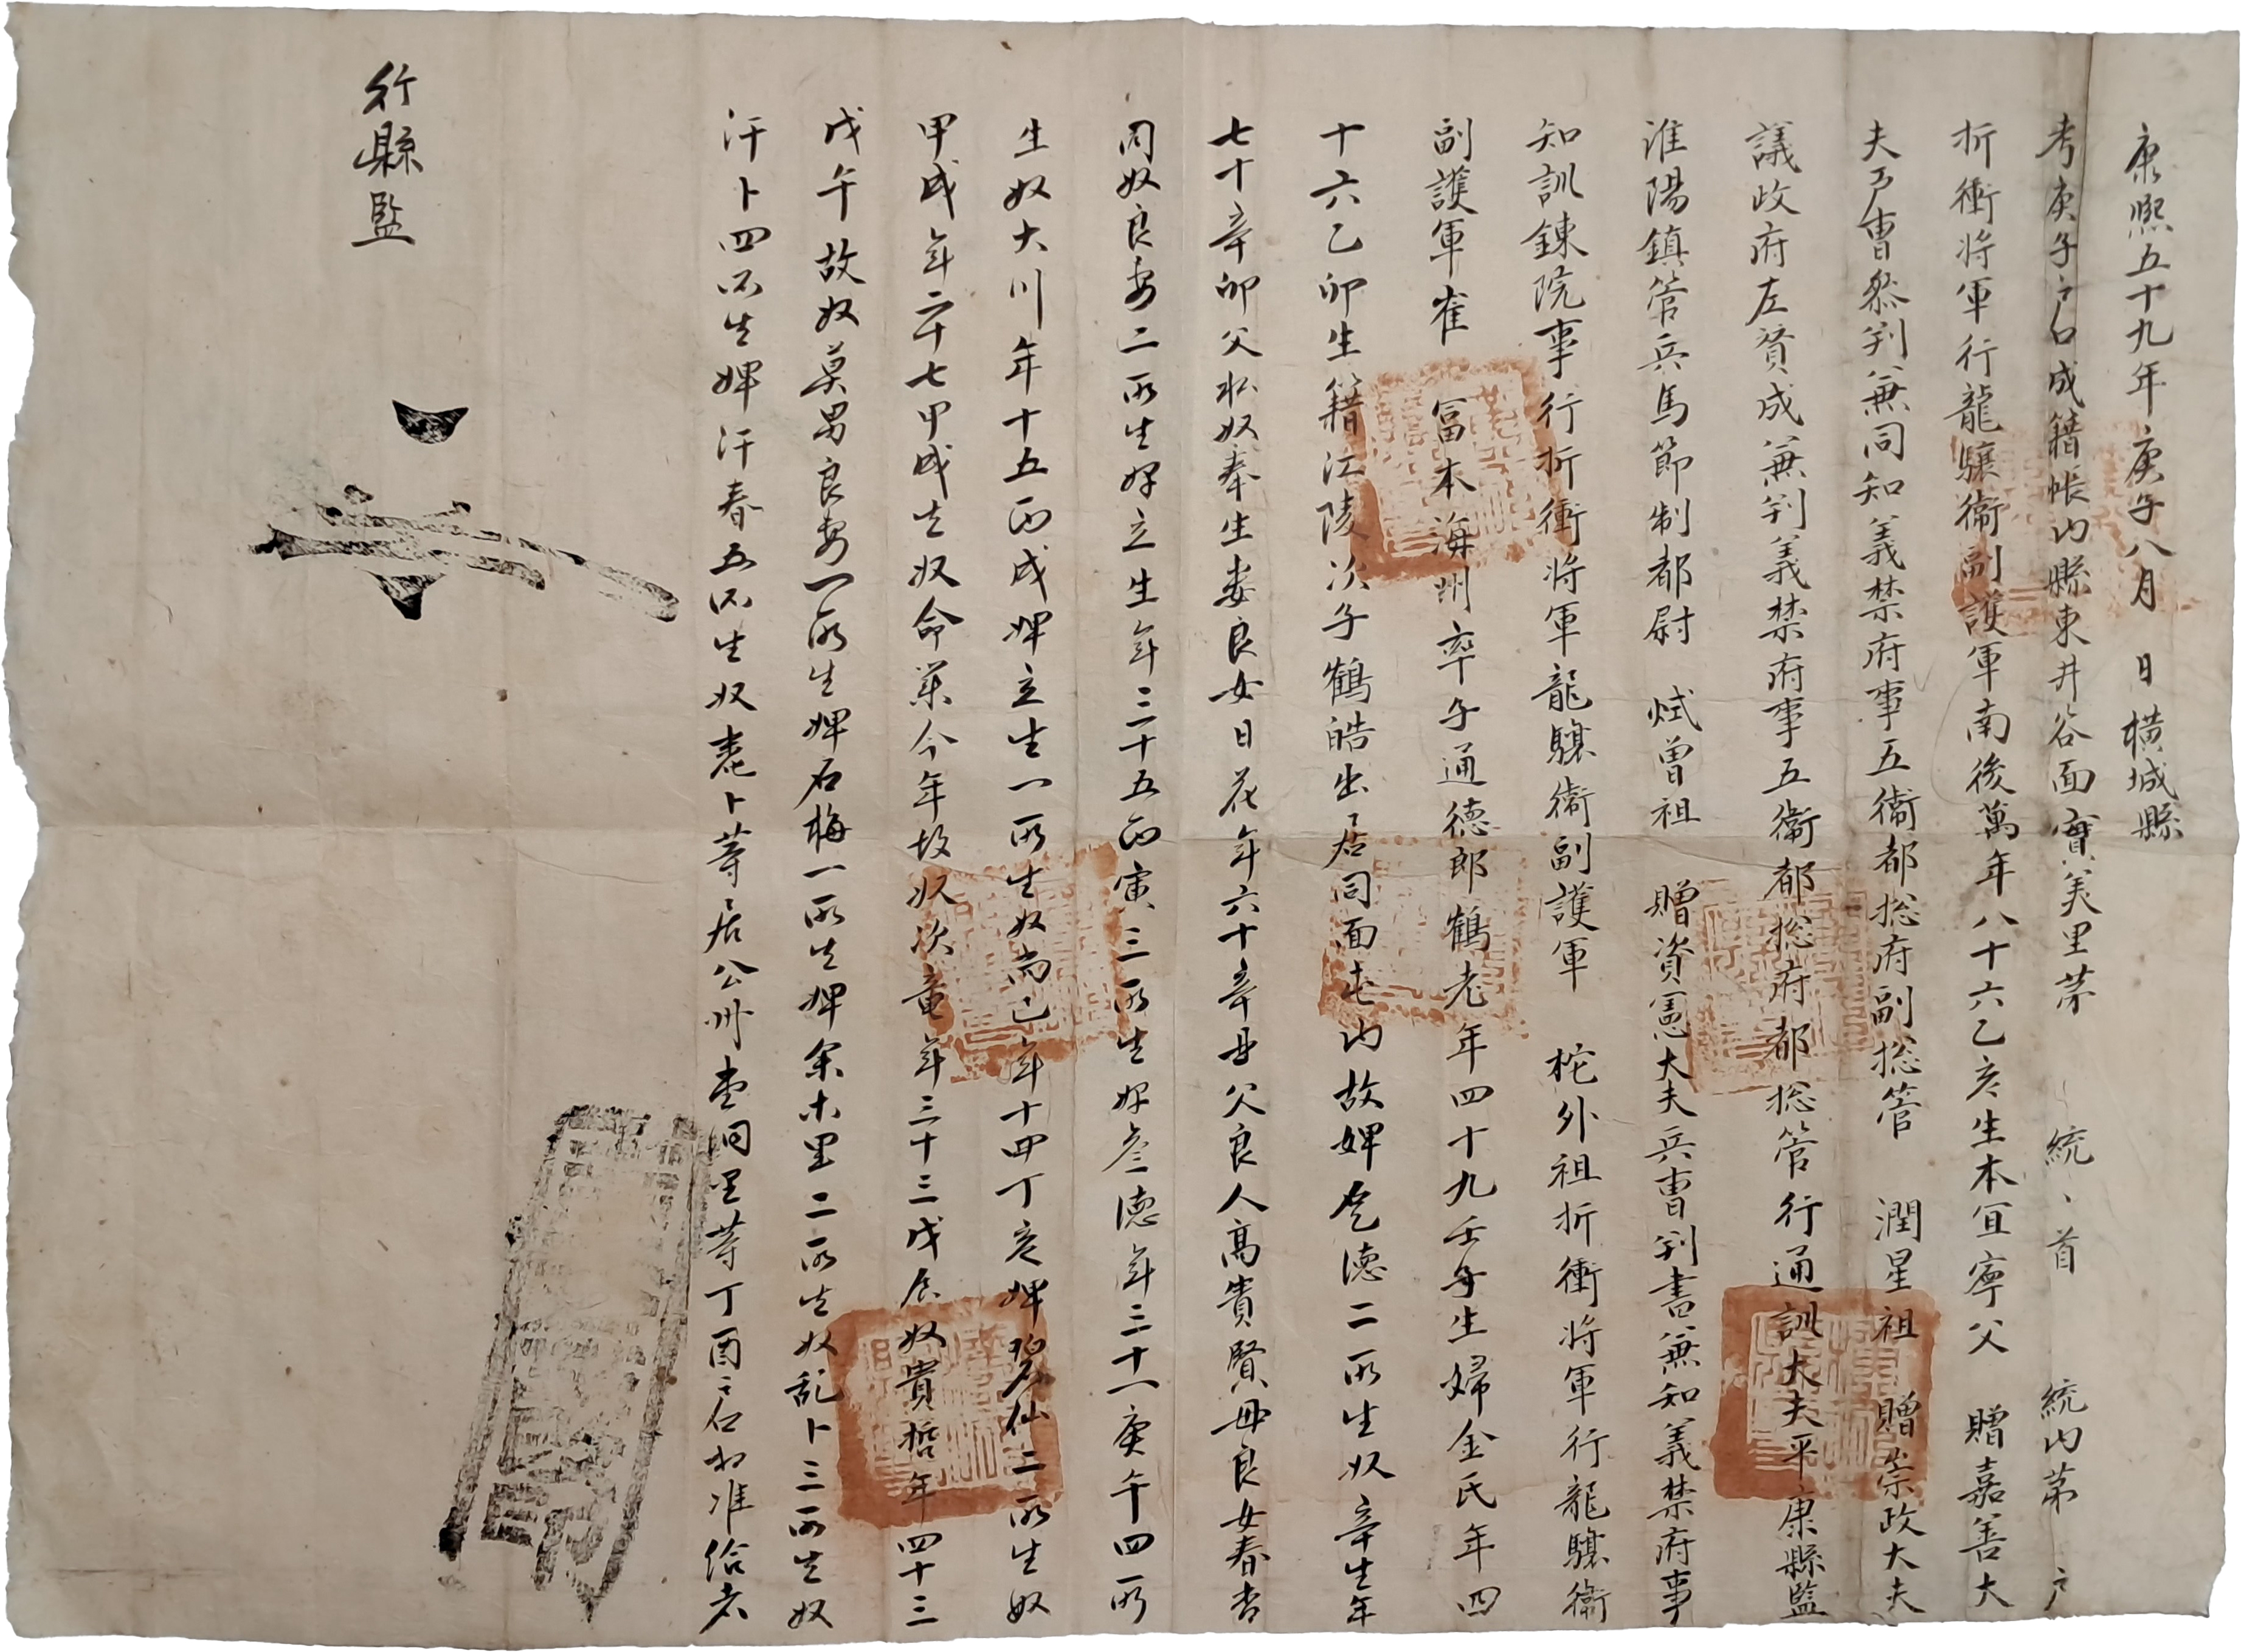 康熙五十九年庚子八月 日橫城縣
考庚子戶口成籍帳內縣東井谷面實美里第 統、首 統內第 戶
折衝將軍行龍驤衛副護軍南後萬年八十六乙亥生本宜寧父 贈嘉善大
夫戶曹叅判兼同知義禁府事五衛都捴府副捴管 潤星祖 贈崇政大夫
議政府左贊成兼判義禁府事五衛都捴府都捴管行通訓大夫平康縣監
淮陽鎭管兵馬節制都尉 烒曾祖 贈資憲大夫兵曹判書兼知義禁府事
知訓鍊院事行折衝將軍龍驤衛副護軍 柁外祖折衝將軍行龍驤衛
副護軍崔 冨本海州率子通德郎鶴老年四十九壬子生婦金氏年四
十六乙卯生籍江陵次子鶴皓出居同面屯內故婢 德二所生奴辛生年
七十辛卯父私奴奉生妻良女日花年六十辛丑父良人高貴賢母良女春香
同奴良妻二所生婢立生年三十五丙寅三所生婢叁德年三十一庚午四所
生奴大川年十五丙戌婢立生一所生奴尚己年十四丁亥婢碧仙二所生奴
甲戌年二十七甲戌生奴命業今年故奴次童年三十三戊辰奴貴哲年四十三
戊午故奴莫男良妻一所生婢石梅一所生婢 里二所生奴乱卜三所生奴
汗卜四所生婢汗春五所生奴 卜等居公州 洞里等丁酉戶口相准給者
行縣監